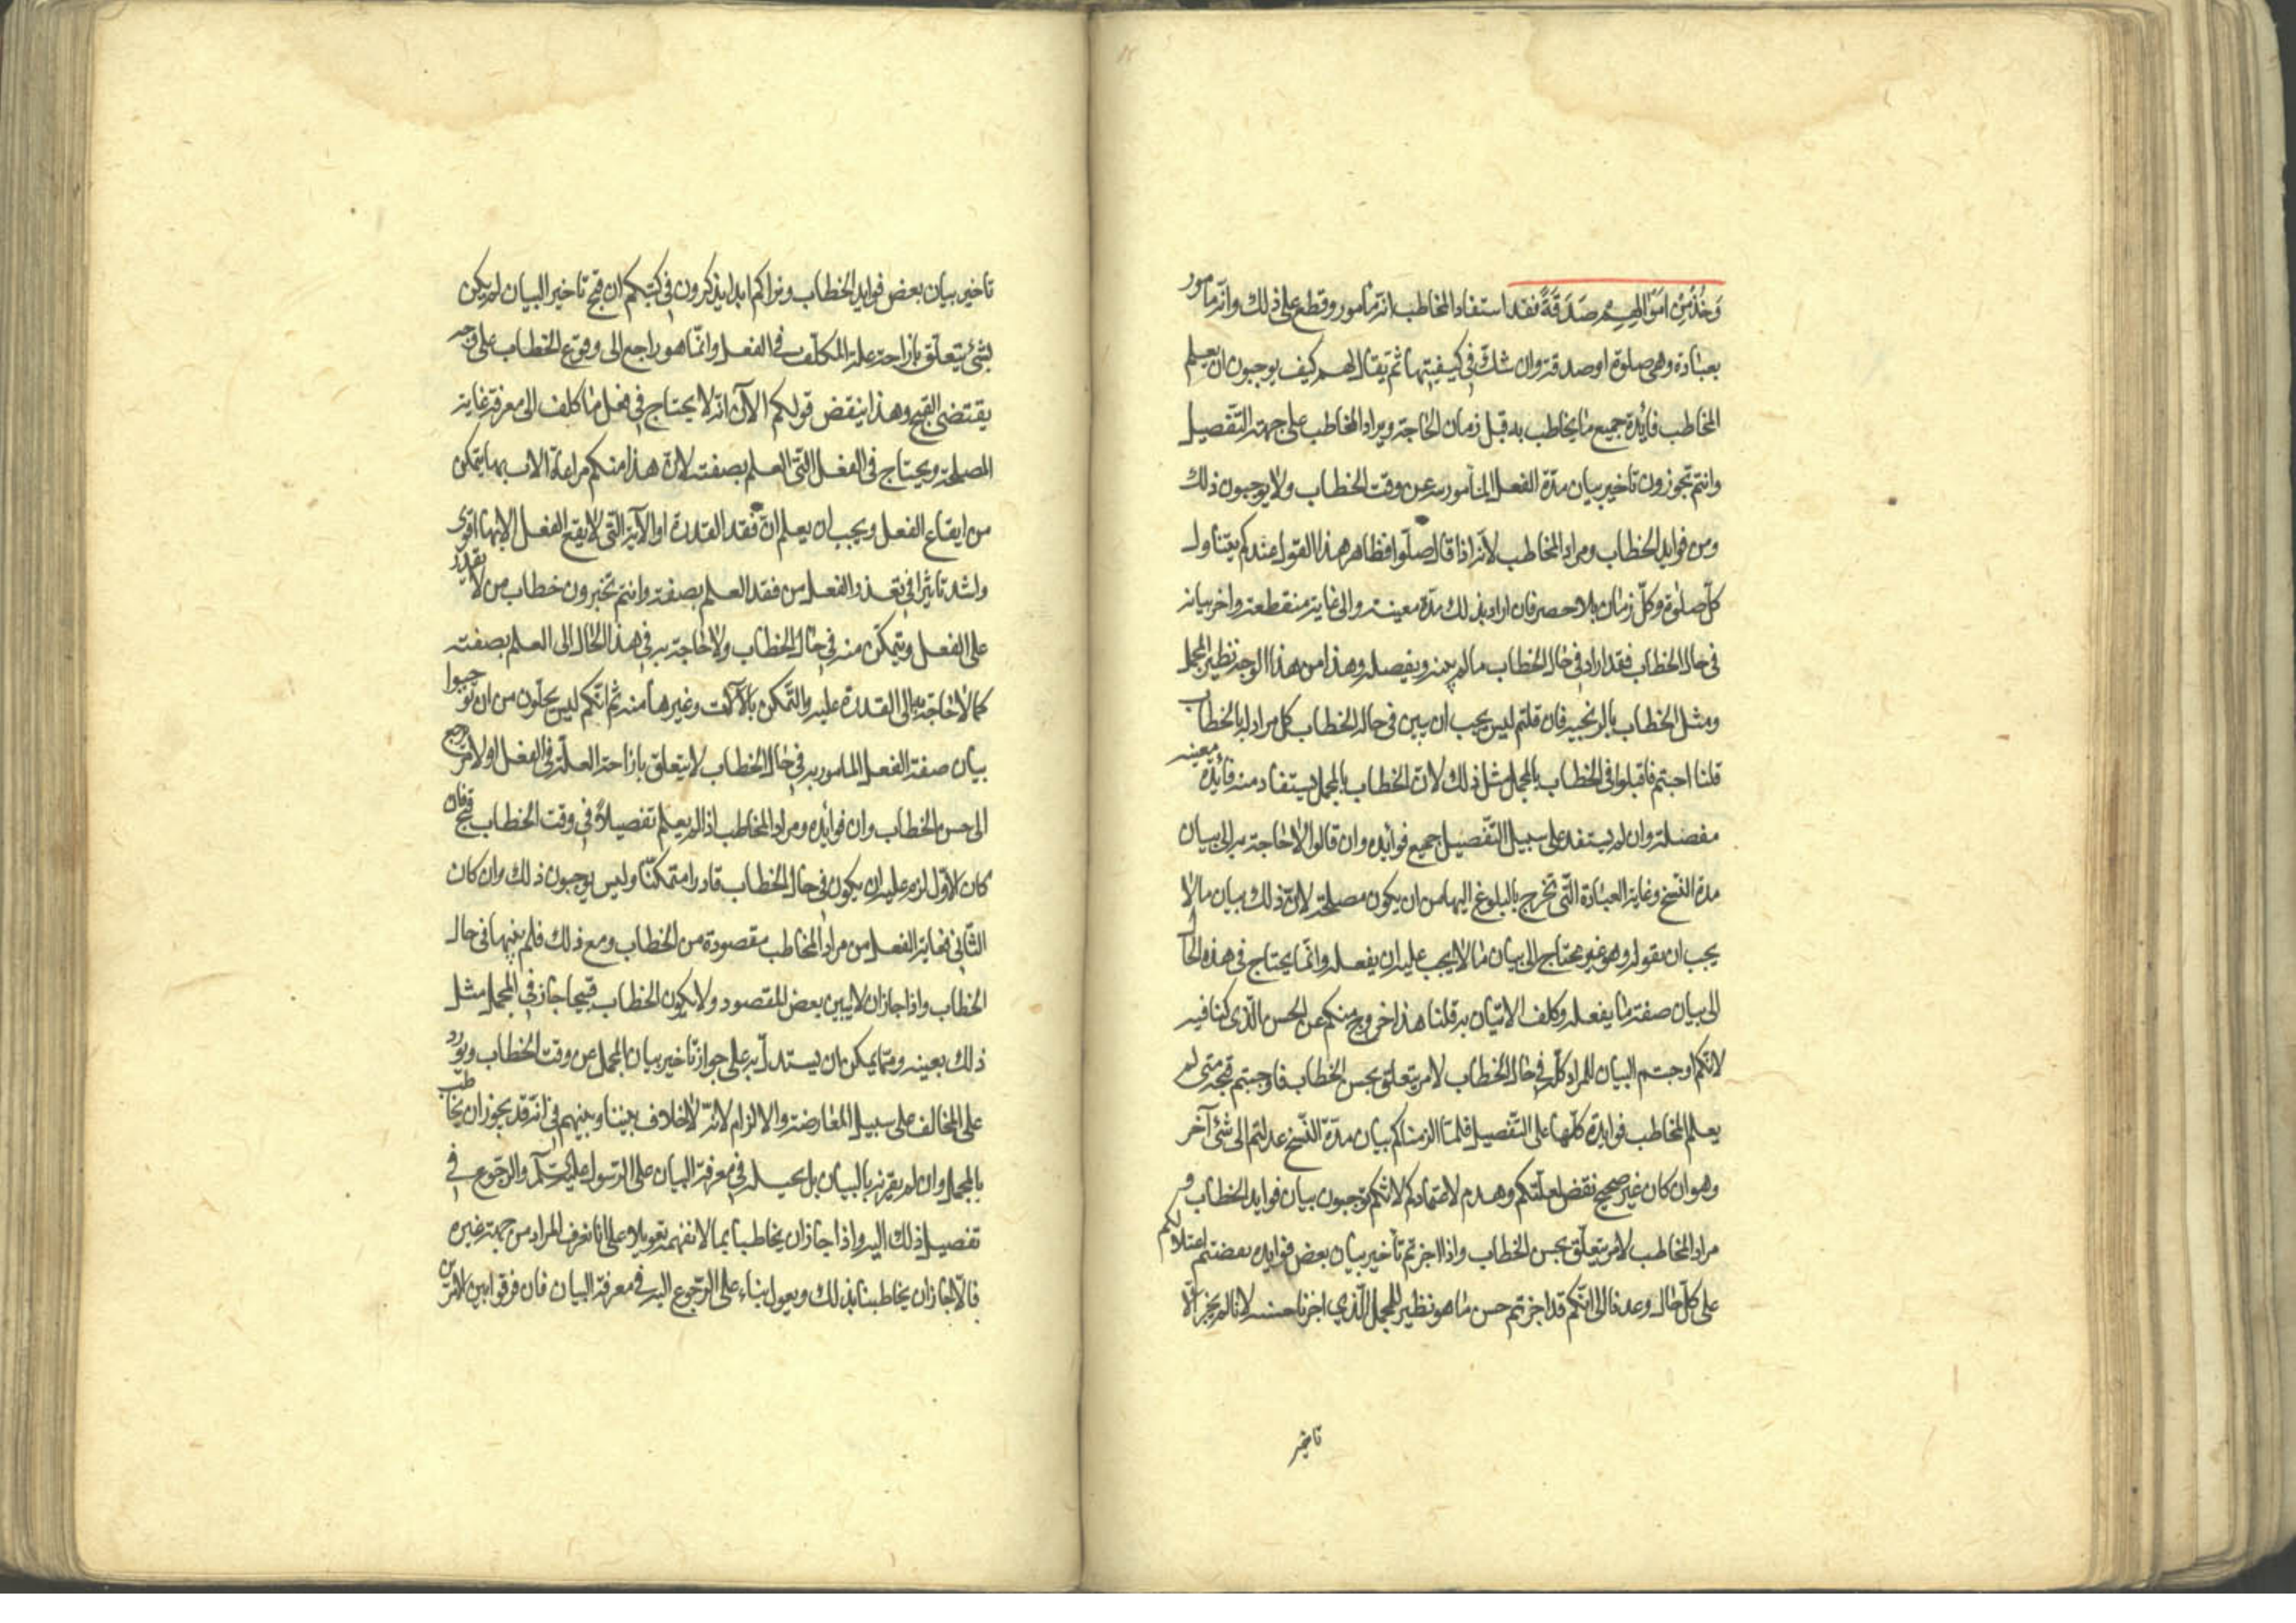 وَخُذْ مِنْ اَمَوْالِهِمْ صَدَقَةً فقد استفاد المخاطب انه مأمور وقطع على ذلك وانه مأمور
بعبادة وهي صلوة او صدقة وان شك في كيفيتها ثم يقال لهم كيف يوجبون ان يعلم
المخاطب فائدة جميع ما يخاطب به قبل زمان الحاجة ويراد المخاطب على جهة التفصيل
وانتم تجوزون تاخير بيان مدة الفعل المأمور به عن وقت الخطاب ولا يوجبون ذلك
ومن فوايد الخطاب ومراد المخاطب لانه اذا قال صلوا فظاهر هذا القول عندكم يتناول
كل صلوة وكل زمان بلا حصر فان اراد بذلك مدة معينة والى غاية منقطعة واخر بيانه
في حال الخطاب فقد اراد في حال الخطاب ما لم يبينه ويفصله وهذا من هذا الوجه نظير المجمل
ومثل الخطاب بالزنجية فان قلتم ليس يجب ان يبين في حال الخطاب كل مراد له بالخطاب
قلنا اجبتم فاقبلوا في الخطاب بالمجمل مثل ذلك لان الخطاب بالمجمل يستفاد منه فائدة معينة
مفصلة وان لم يستفد على سبيل التفصيل جميع فوائده وان قالوا لا حاجة به الى بيان
مدة النسخ وغاية العبادة التي تخرج بالبلوغ اليها من ان يكون مصلحة لان ذلك بيان ما لا
يجب ان يقوله وهو غير محتاج الى بيان ما لا يجب عليه ان يفعله وانما يحتاج في هذه الحال
الى بيان صفة ما يفعله وكلف الاتيان به قلنا هذا خروج منكم عن الحسن الذي كنا فيه
لانكم اوجبتم البيان للمراد كله في حال الخطاب لامر يتعلق بحسن الخطاب فاوجبتم قبحه متى لم
يعلم المخاطب فوايده كلها على التفصيل فلما الزمناكم بيان مدة النسخ عدلتم الى شئ آخر
وهو ان كان غير صحيح نقض لعلتكم وهدم لاعتمادكم لانكم توجبون بيان فوايد الخطاب و
مراد المخاطب لامر يتعلق بحسن الخطاب واذا اجزتم تأخير بيان بعض فوايده نقضتم اعتلالكم
على كل حال وعدنا الى انكم قد اجزتم حسن ما هو نظير للمجمل الذي اجزنا حسنه لانا لم نجز الا
تاخير
تاخير بيان بعض فوايد الخطاب ونراكم ابدا يذكرون في كتبكم ان قبح تاخير البيان لم يكن
بشئ يتعلق بازاحة علة المكلف في الفعل وانما هو راجع الى وقوع الخطاب على وجه
يقتضى القبح وهذا ينقض قولكم الآن انه لا يحتاج في فعل ما كلف الى معرفة غاية
المصلحة ويحتاج في الفعل التى العلم بصفته لان هذا منكم مراعاة الاب بهما يتمكن
من ايقاع الفعل ويجب ان يعلم ان فقد القدرة او الآلة التي لا يقع الفعل الا بها اقوى
واشد تاثيرا في تعذر الفعل من فقد العلم بصفته وانتم تخبرون خطاب من لا يقدر
على الفعل ويتمكن منه في حال الخطاب ولا حاجة به في هذا الحال الى العلم بصفته
كما لا حاجة به الى القدرة عليه والتمكن بالآلات وغيرها منه ثم انكم ليس يخلون من ان توجبوا
بيان صفة الفعل المامور به في حال الخطاب لا يتعلق بازاحة العلة في الفعل او لامر يرجع
الى حسن الخطاب وان فوائده ومراد المخاطب اذا لم يعلم تفصيلا في وقت الخطاب قبح فان
كان الاول لزم عليه ان يكون في حال الخطاب قادرا متمكنا وليس يوجبون ذلك وان كان
الثانى فغاية الفعل من مراد المخاطب مقصودة من الخطاب ومع ذلك فلم يبنها في حال
الخطاب واذا جاز ان لا يبين بعض المقصود ولا يكون الخطاب قبيحا جاز في المجمل مثل
ذلك بعينه ومما يمكن ان يستدل به على جواز تاخير بيان المجمل عن وقت الخطاب ويورد
على المخالف على سبيل المعارضة والالزام لانه لا خلاف بيننا وبينهم في انه قد يجوز ان يخاطب
بالمجمل وان لم يقرنه بالبيان بل يحيله في معرفة البيان على الرسول عليه السلم والرجوع في
تفصيل ذلك اليه واذا جاز ان يخاطب بما لا نفهمه تعويلا على انا نعرف المراد من جهة غيره
فالاجاز ان يخاطبنا بذلك ويعول بناء على الرجوع اليه في معرفة البيان فان فرقوا بين الامرين